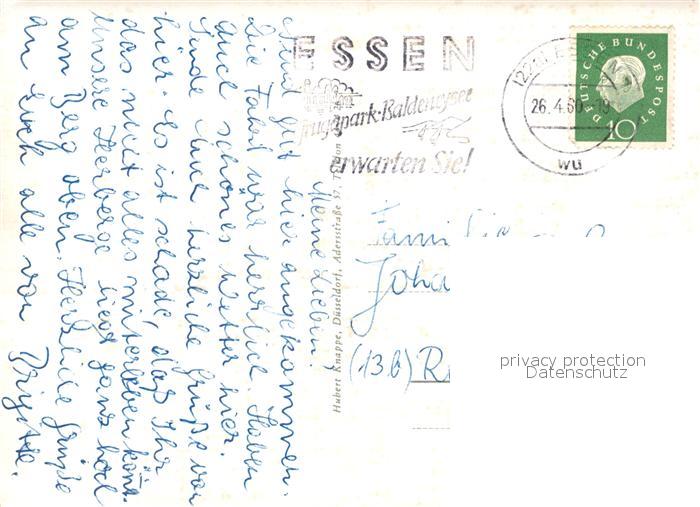 Meine Lieben!
Sind gut hier angekommen.
Die Fahrt war herrlich. Haben
auch schönes Wetter hier.
Sende Euch herzliche Grüße von
hier. Es ist schade, daß Ihr
das nicht alles miterleben könnt.
Unsere Herberge liegt ganz hoch
am Berg oben. Herzliche Grüße
an Euch alle von
Brigitte.
Hubert Knappe, Düsseldorf, Adersstraße 57,
ESSEN
Grugapark-Baldeneysee
erwarten Sie!
26.4.60
wu
DEUTSCHE BUNDESPOST
10
Joha
(13b) R
privacy protection
Datenschutz